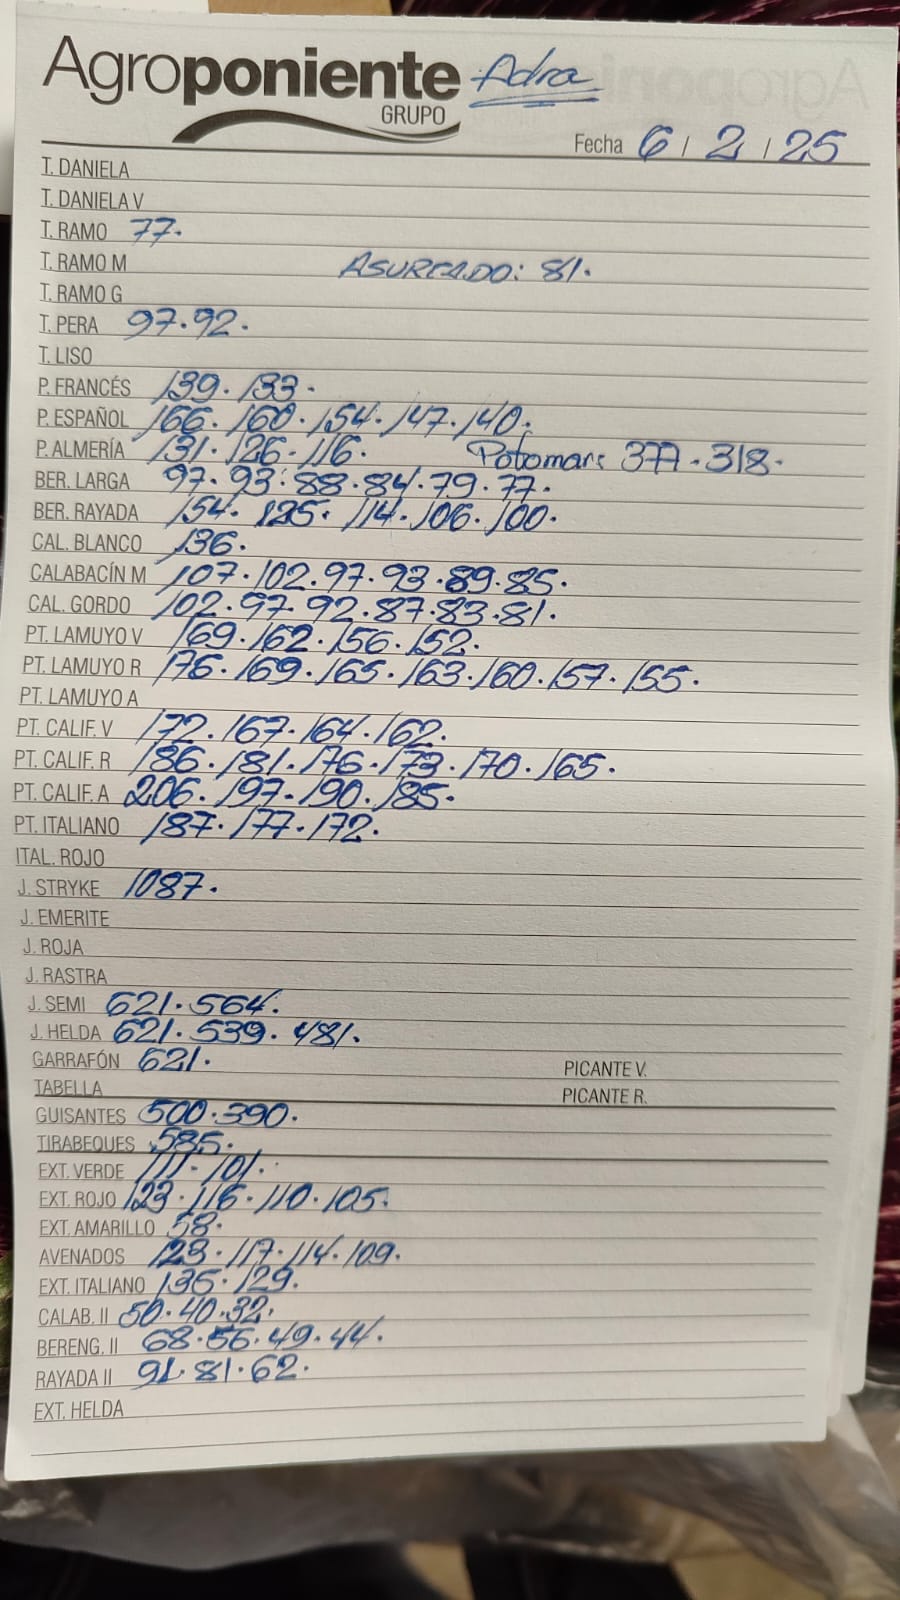 Agroponiente Adra
GRUPO
Fecha 6 / 2 / 25
T. DANIELA
T. DANIELA V
T. RAMO 77.
T. RAMO M ASURCADO: 81.
T. RAMO G
T. PERA 97.92.
T. LISO
P. FRANCÉS 139. 133.
P. ESPAÑOL 166. 160. 154. 147. 140.
P. ALMERÍA 131. 126. 116. Potomar: 377. 318.
BER. LARGA 97. 93. 88. 84. 79. 77.
BER. RAYADA 154. 125. 114. 106. 100.
CAL. BLANCO 136.
CALABACÍN M 107. 102. 97. 93. 89. 85.
CAL. GORDO 102. 97. 92. 87. 83. 81.
PT. LAMUYO V 169. 162. 156. 152.
PT. LAMUYO R 176. 169. 165. 163. 160. 157. 155.
PT. LAMUYO A
PT. CALIF. V 172. 167. 164. 162.
PT. CALIF. R 186. 181. 176. 173. 170. 165.
PT. CALIF. A 206. 197. 190. 185.
PT. ITALIANO 187. 177. 172.
ITAL. ROJO
J. STRYKE 1087.
J. EMERITE
J. ROJA
J. RASTRA
J. SEMI 621. 564.
J. HELDA 621. 539. 481.
GARRAFÓN 621. PICANTE V.
TABELLA PICANTE R.
GUISANTES 500. 390.
TIRABEQUES 585.
EXT. VERDE 111. 101.
EXT. ROJO 123. 116. 110. 105.
EXT. AMARILLO 58.
AVENADOS 123. 117. 114. 109.
EXT. ITALIANO 136. 129.
CALAB. II 50. 40. 32.
BERENG. II 68. 56. 49. 44.
RAYADA II 91. 81. 62.
EXT. HELDA